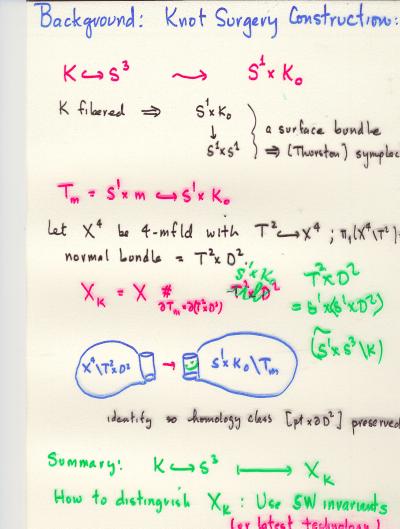 Background: Knot Surgery Construction:
K ↪ S³ ⇝ S¹×K₀
K fibered ⇒ S¹×K₀
↓
S¹×S¹
} a surface bundle
⇒ (Thurston) symplec
Tₘ = S¹×m ↪ S¹×K₀
Let X⁴ be 4-mfld with T² ↪ X⁴ ; π₁(X⁴\T²)
normal bundle = T²×D².
X_K = X # S¹×K
∂Tₘ=∂(T²×D²)
T²×D²
= S¹×(S¹×D²)
(S¹×S³\K)
X⁴\T²×D² → S¹×K₀\Tₘ
identify so homology class [pt×∂D²] preserved
Summary: K ↪ S³ ⟼ X_K
How to distinguish X_K : Use SW invariants
(or latest technology)